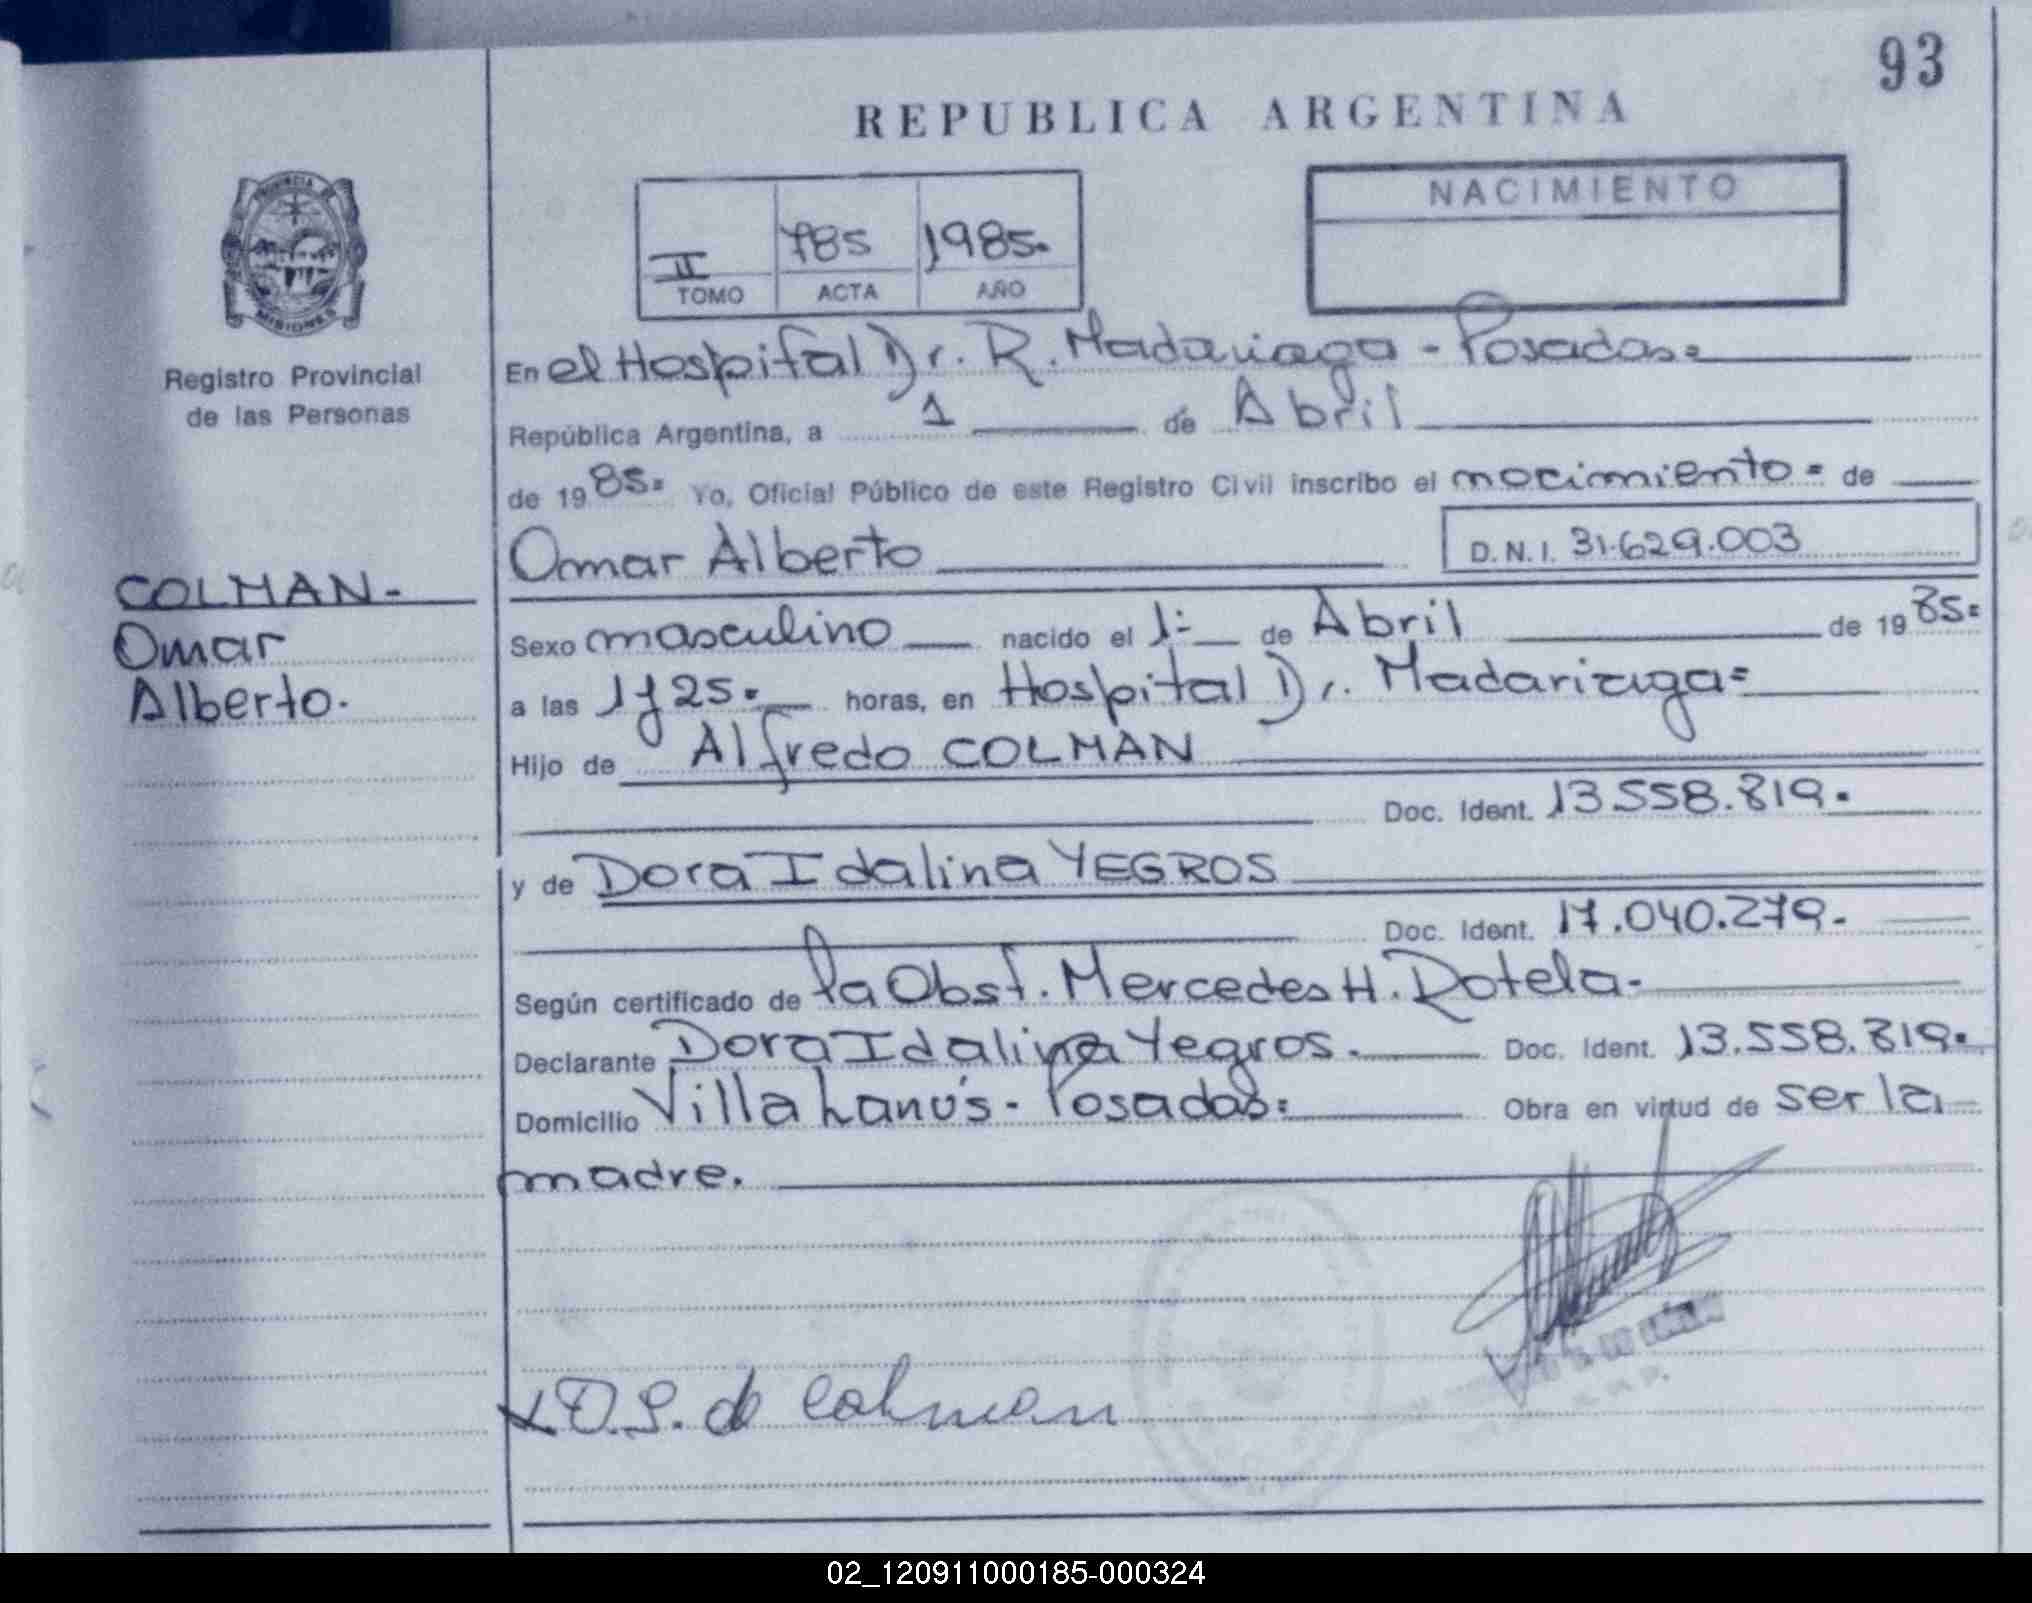 93
REPUBLICA ARGENTINA
PROVINCIA DE
MISIONES
Registro Provincial
de las Personas
II 785 1985.
TOMO ACTA AÑO
NACIMIENTO
En el Hospital Dr. R. Madariaga - Posadas=
República Argentina, a 1 de Abril
de 1985= Yo, Oficial Público de este Registro Civil inscribo el nacimiento = de
Omar Alberto D.N.I. 31.629.003
COLMAN-
Omar
Alberto.
Sexo masculino nacido el 1º de Abril de 1985=
a las 1 y 25. horas, en Hospital Dr. Madariaga=
Hijo de Alfredo COLMAN
Doc. Ident. 13.558.819.
y de Dora Idalina YEGROS
Doc. Ident. 17.040.279.
Según certificado de la Obst. Mercedes H. Rotela-
Declarante Dora Idalina Yegros. Doc. Ident. 13.558.819.
Domicilio Villa Lanús - Posadas= Obra en virtud de ser la
madre.
de Colman
02_120911000185-000324